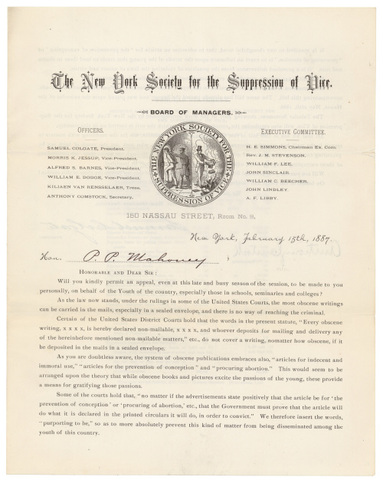 The New York Society for the Suppression of Vice.
BOARD OF MANAGERS.
OFFICERS.
SAMUEL COLGATE, President.
MORRIS K. JESSUP, Vice-President.
ALFRED S. BARNES, Vice-President.
WILLIAM E. DODGE, Vice-President.
KILIAEN VAN RENSSELAER, Treas.
ANTHONY COMSTOCK, Secretary.
THE NEW YORK SOCIETY FOR THE SUPPRESSION OF VICE
EXECUTIVE COMMITTEE.
H. E. SIMMONS, Chairman Ex. Com.
Rev. J. M. STEVENSON.
WILLIAM F. LEE,
JOHN SINCLAIR
WILLIAM C. BEECHER,
JOHN LINDLEY
A. F. LIBBY.
150 NASSAU STREET, Room No. 9,
New York, February 15th, 1887.
Hon. P. P. Mahoney
HONORABLE AND DEAR SIR:
Will you kindly permit an appeal, even at this late and busy season of the session, to be made to you
personally, on behalf of the Youth of the country, especially those in schools, seminaries and colleges?
As the law now stands, under the rulings in some of the United States Courts, the most obscene writings
can be carried in the mails, especially in a sealed envelope, and there is no way of reaching the criminal.
Certain of the United States District Courts hold that the words in the present statute, "Every obscene
writing, x x x x, is hereby declared non-mailable, x x x x, and whoever deposits for mailing and delivery any
of the hereinbefore mentioned non-mailable matters," etc., do not cover a writing, no matter how obscene, if it
be deposited in the mails in a sealed envelope.
As you are doubtless aware, the system of obscene publications embraces also, "articles for indecent and
immoral use," "articles for the prevention of conception" and "procuring abortion." This would seem to be
arranged upon the theory that while obscene books and pictures excite the passions of the young, these provide
a means for gratifying those passions.
Some of the courts hold that, "no matter if the advertisements state positively that the article be for 'the
prevention of conception' or 'procuring of abortion,' etc., that the Government must prove that the article will
do what it is declared in the printed circulars it will do, in order to convict." We therefore insert the words,
"purporting to be," so as to more absolutely prevent this kind of matter from being disseminated among the
youth of this country.